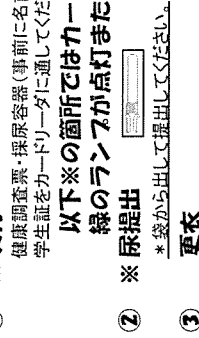 健康調査票・採尿容器(事前に名
学生証をカードリーダに通してくだ
以下※の箇所ではカー
緑のランプが点灯また
② ※尿提出
*袋から出して提出してください。
③ 更衣